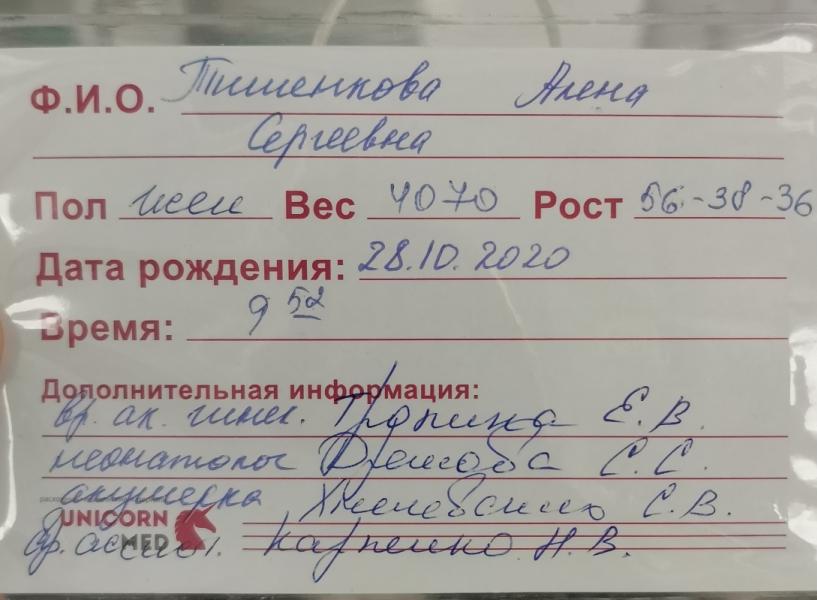 Ф.И.О. Тишенкова Алена
Сергеевна
Пол жен Вес 4070 Рост 56-38-36
Дата рождения: 28.10.2020
Время: 9 52
Дополнительная информация:
вр. ак. гинек. Тропина Е.В.
неонатолог С.С.
акушерка С.В.
UNICORN
MED
вр. ассист. Карпенко Н.В.